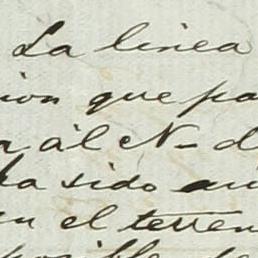 La linea
ion que pa
a ál N- d
ha sido
en el terren